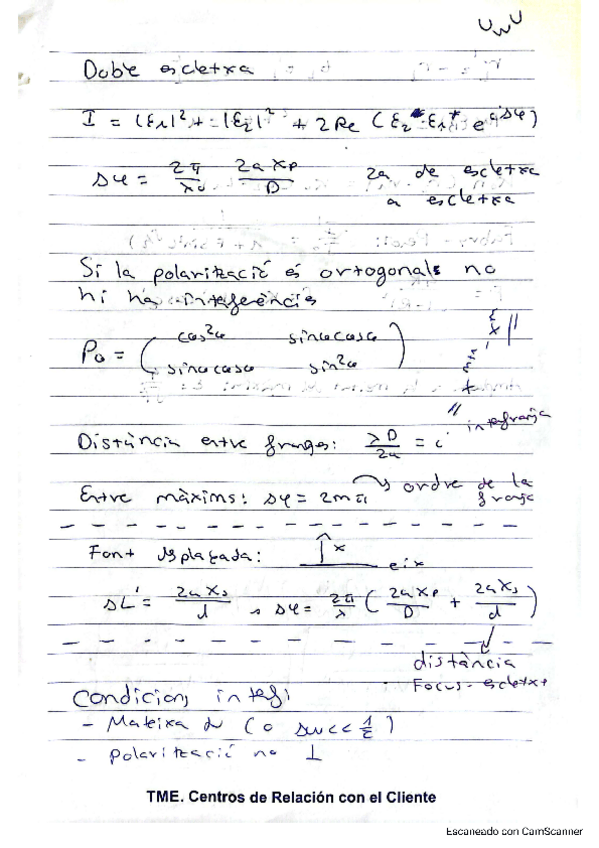 UwU
Doble escletxa
I = |ε₁|² + |ε₂|² + 2Re (ε₂ ε₁* e^{iΔφ})
Δφ = 2π/λ₀ 2a Xp/D 2a de escletxa
a escletxa
Si la polarització és ortogonal no
hi ha inteferències
Pα = ( cos²α sinαcosα
sinαcosα sin²α )
Distància entre franges: λD/2a = i interfranja
Entre màxims: Δφ = 2mπ → ordre de la
franja
Font desplaçada: x eix
ΔL' = 2aXs/d Δφ = 2π/λ ( 2aXp/D + 2aXs/d )
distància
Focus-escletxa
Condicions intef:
- Mateixa ν (o Δν << 1/τ)
- polarització no ⊥
TME. Centros de Relación con el Cliente
Escaneado con CamScanner